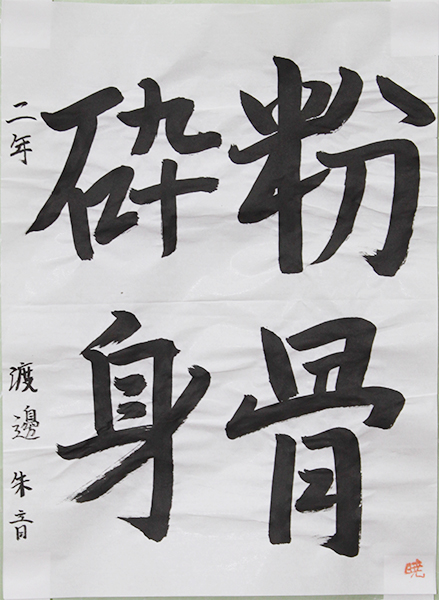 粉骨
砕身
二年 渡邊朱音
暁